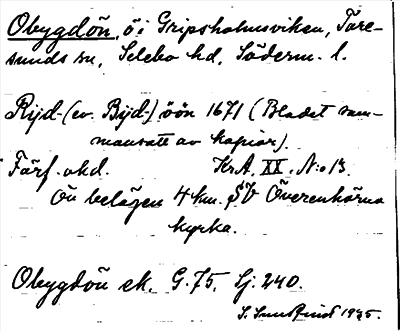 Obygdön, ö i Gripsholmsviken, Tore-
sunds sn, Selebo hd, Söderm. l.
Rijd-(ev. Bijd-) öön 1671 (Bladet sam-
mansatt av kopior).
Färf. okd. KrA. XX. N:o 13.
Ön belägen 4 km. SV Överenhörna
kyrka.
Obygdön ek. G. 75. Lj. 240.
S. 1935.